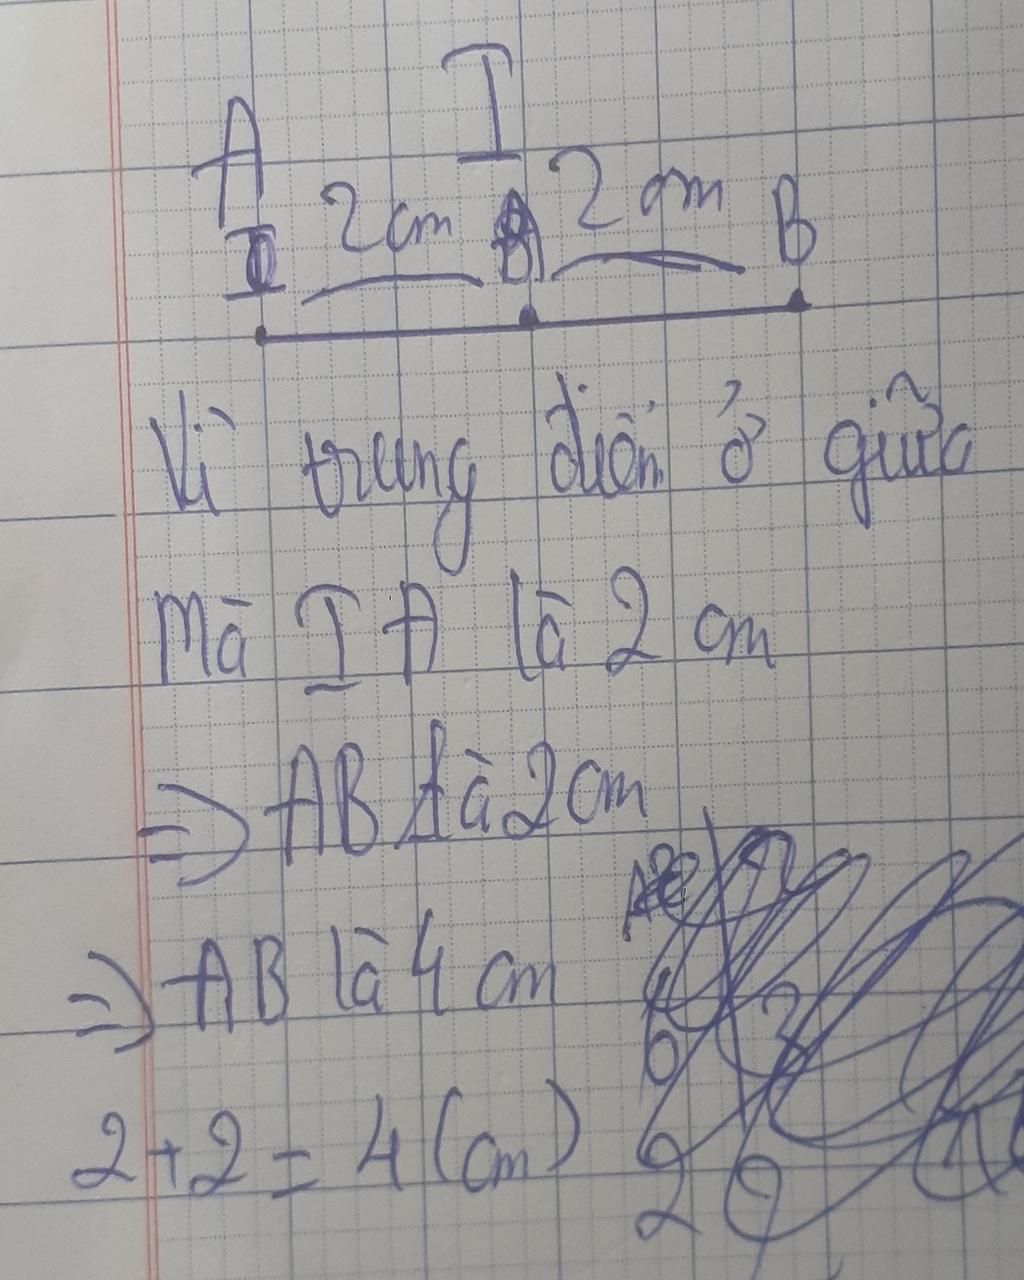 I
A 2 cm 2 cm B
Vì trung điểm ở giữa
Mà IA là 2 cm
=> AB là 2 cm
=> AB là 4 cm
2 + 2 = 4 (cm)